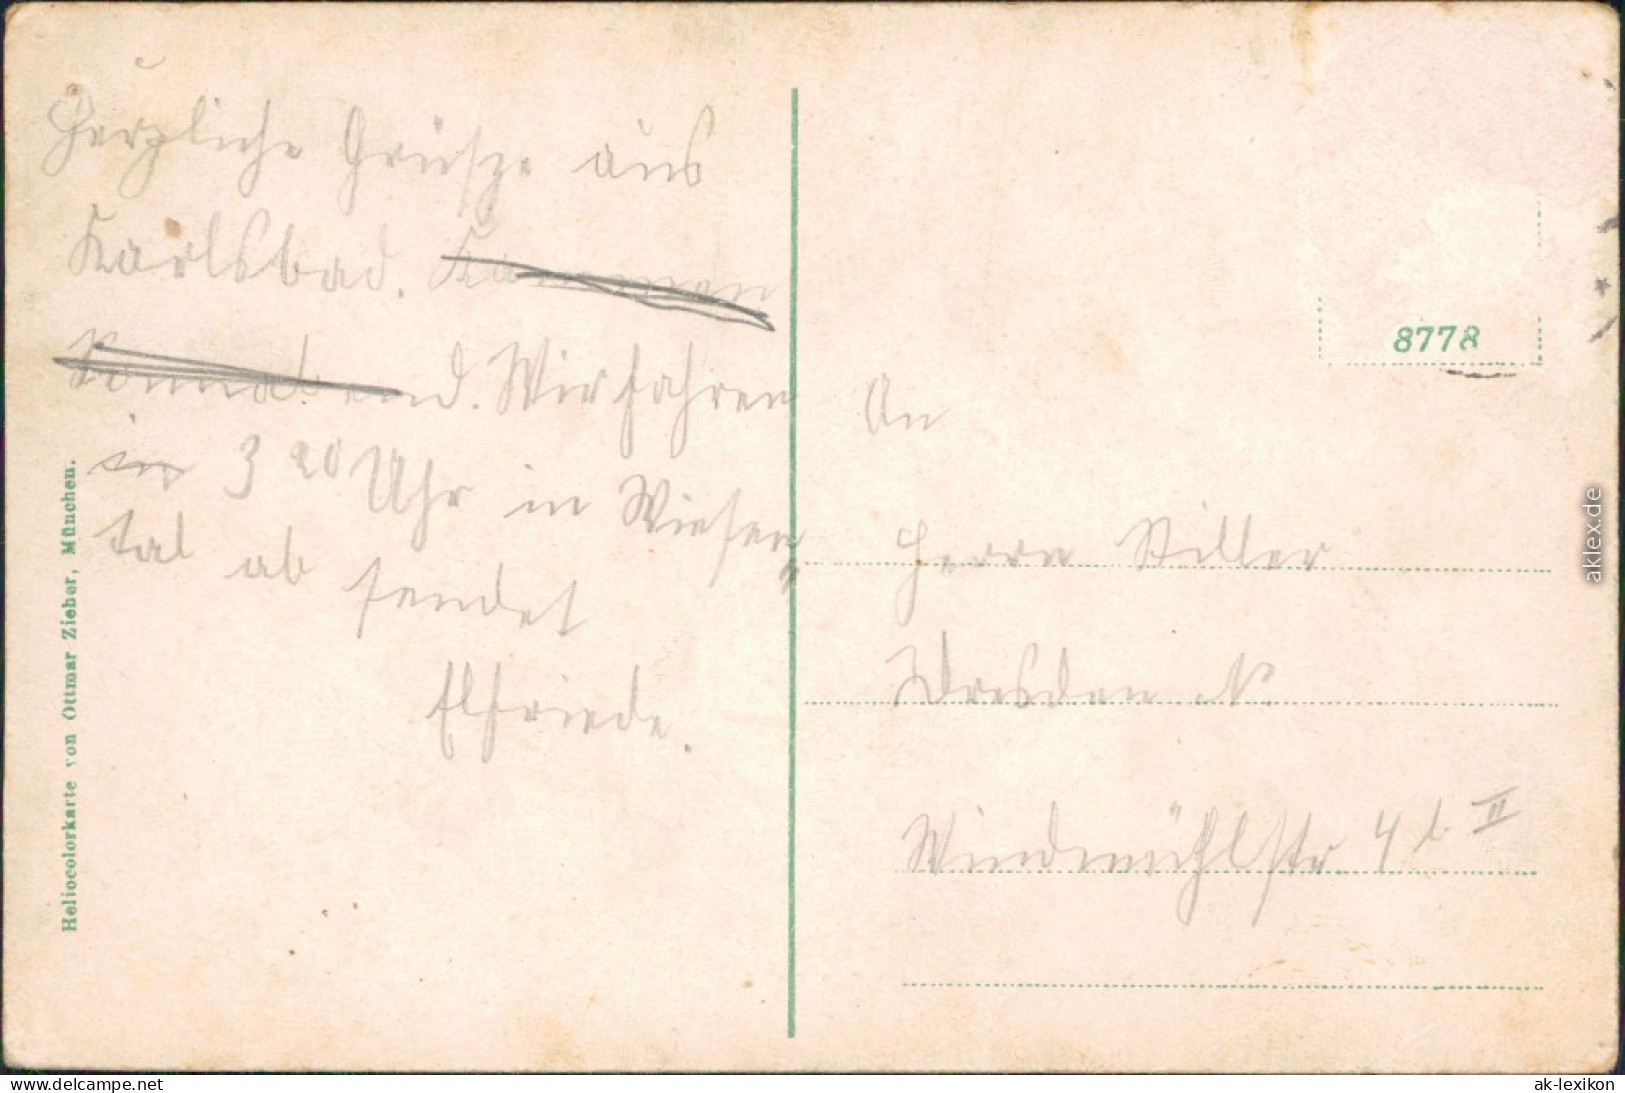 Herzliche Grüsze aus
Karlsbad. Kommen
Sonnabend. Wir fahren
in 3 20 Uhr in Wiesen
tal ab sendet
Elfriede.
Heliocolorkarte von Ottmar Zieher, München.
8778
An
Herrn Stiller
Dresden N.
Windmühlstr. 4 b II
aklex.de
www.delcampe.net
ak-lexikon